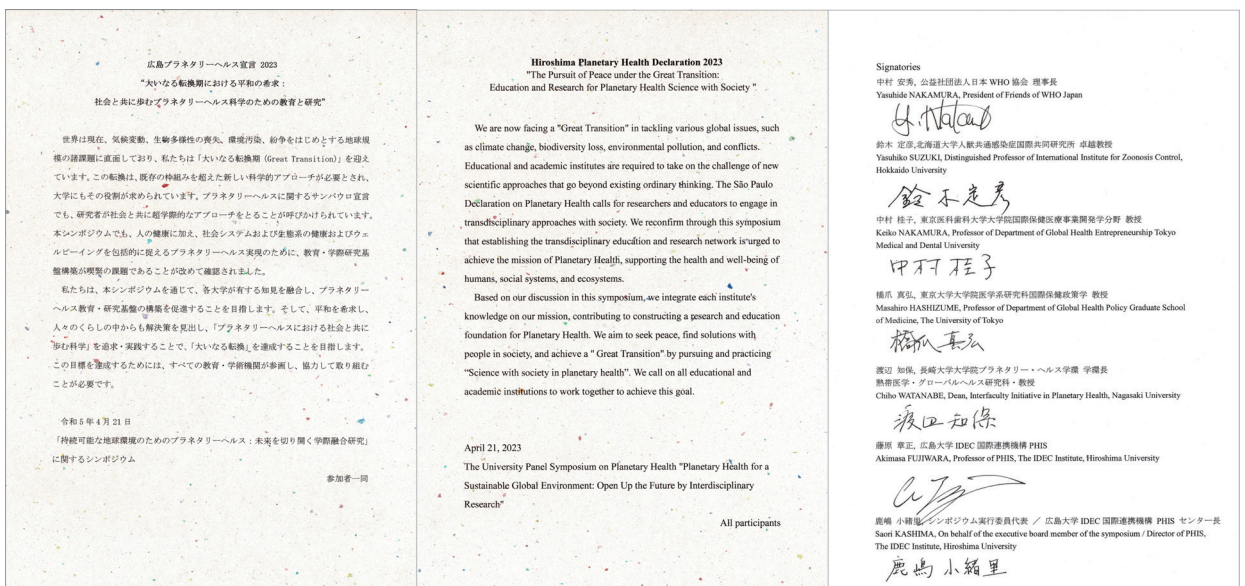 広島プラネタリーヘルス宣言 2023
“大いなる転換期における平和の希求：
社会と共に歩むプラネタリーヘルス科学のための教育と研究”
世界は現在、気候変動、生物多様性の喪失、環境汚染、紛争をはじめとする地球規
模の諸課題に直面しており、私たちは「大いなる転換期（Great Transition）」を迎え
ています。この転換は、既存の枠組みを超えた新しい科学的アプローチが必要とされ、
大学にもその役割が求められています。プラネタリーヘルスに関するサンパウロ宣言
でも、研究者が社会と共に超学際的なアプローチをとることが呼びかけられています。
本シンポジウムでも、人の健康に加え、社会システムおよび生態系の健康およびウェ
ルビーイングを包括的に捉えるプラネタリーヘルス実現のために、教育・学際研究基
盤構築が喫緊の課題であることが改めて確認されました。
私たちは、本シンポジウムを通じて、各大学が有する知見を融合し、プラネタリー
ヘルス教育・研究基盤の構築を促進することを目指します。そして、平和を希求し、
人々のくらしの中からも解決策を見出し、「プラネタリーヘルスにおける社会と共に
歩む科学」を追求・実践することで、「大いなる転換」を達成することを目指します。
この目標を達成するためには、すべての教育・学術機関が参画し、協力して取り組む
ことが必要です。
令和 5 年 4 月 21 日
「持続可能な地球環境のためのプラネタリーヘルス：未来を切り開く学際融合研究」
に関するシンポジウム
参加者一同
Hiroshima Planetary Health Declaration 2023
"The Pursuit of Peace under the Great Transition:
Education and Research for Planetary Health Science with Society "
We are now facing a "Great Transition" in tackling various global issues, such
as climate change, biodiversity loss, environmental pollution, and conflicts.
Educational and academic institutes are required to take on the challenge of new
scientific approaches that go beyond existing ordinary thinking. The São Paulo
Declaration on Planetary Health calls for researchers and educators to engage in
transdisciplinary approaches with society. We reconfirm through this symposium
that establishing the transdisciplinary education and research network is urged to
achieve the mission of Planetary Health, supporting the health and well-being of
humans, social systems, and ecosystems.
Based on our discussion in this symposium, we integrate each institute's
knowledge on our mission, contributing to constructing a research and education
foundation for Planetary Health. We aim to seek peace, find solutions with
people in society, and achieve a " Great Transition" by pursuing and practicing
“Science with society in planetary health”. We call on all educational and
academic institutions to work together to achieve this goal.
April 21, 2023
The University Panel Symposium on Planetary Health "Planetary Health for a
Sustainable Global Environment: Open Up the Future by Interdisciplinary
Research"
All participants
Signatories
中村 安秀, 公益社団法人日本 WHO 協会 理事長
Yasuhide NAKAMURA, President of Friends of WHO Japan
鈴木 定彦,北海道大学人獣共通感染症国際共同研究所 卓越教授
Yasuhiko SUZUKI, Distinguished Professor of International Institute for Zoonosis Control,
Hokkaido University
鈴木定彦
中村 桂子, 東京医科歯科大学大学院国際保健医療事業開発学分野 教授
Keiko NAKAMURA, Professor of Department of Global Health Entrepreneurship Tokyo
Medical and Dental University
中村桂子
橋爪 真弘, 東京大学大学院医学系研究科国際保健政策学 教授
Masahiro HASHIZUME, Professor of Department of Global Health Policy Graduate School
of Medicine, The University of Tokyo
橋爪真弘
渡辺 知保, 長崎大学大学院プラネタリー・ヘルス学環 学環長
熱帯医学・グローバルヘルス研究科・教授
Chiho WATANABE, Dean, Interfaculty Initiative in Planetary Health, Nagasaki University
渡辺知保
藤原 章正, 広島大学 IDEC 国際連携機構 PHIS
Akimasa FUJIWARA, Professor of PHIS, The IDEC Institute, Hiroshima University
鹿嶋 小緒里, シンポジウム実行委員代表 ／ 広島大学 IDEC 国際連携機構 PHIS センター長
Saori KASHIMA, On behalf of the executive board member of the symposium / Director of PHIS,
The IDEC Institute, Hiroshima University
鹿嶋 小緒里